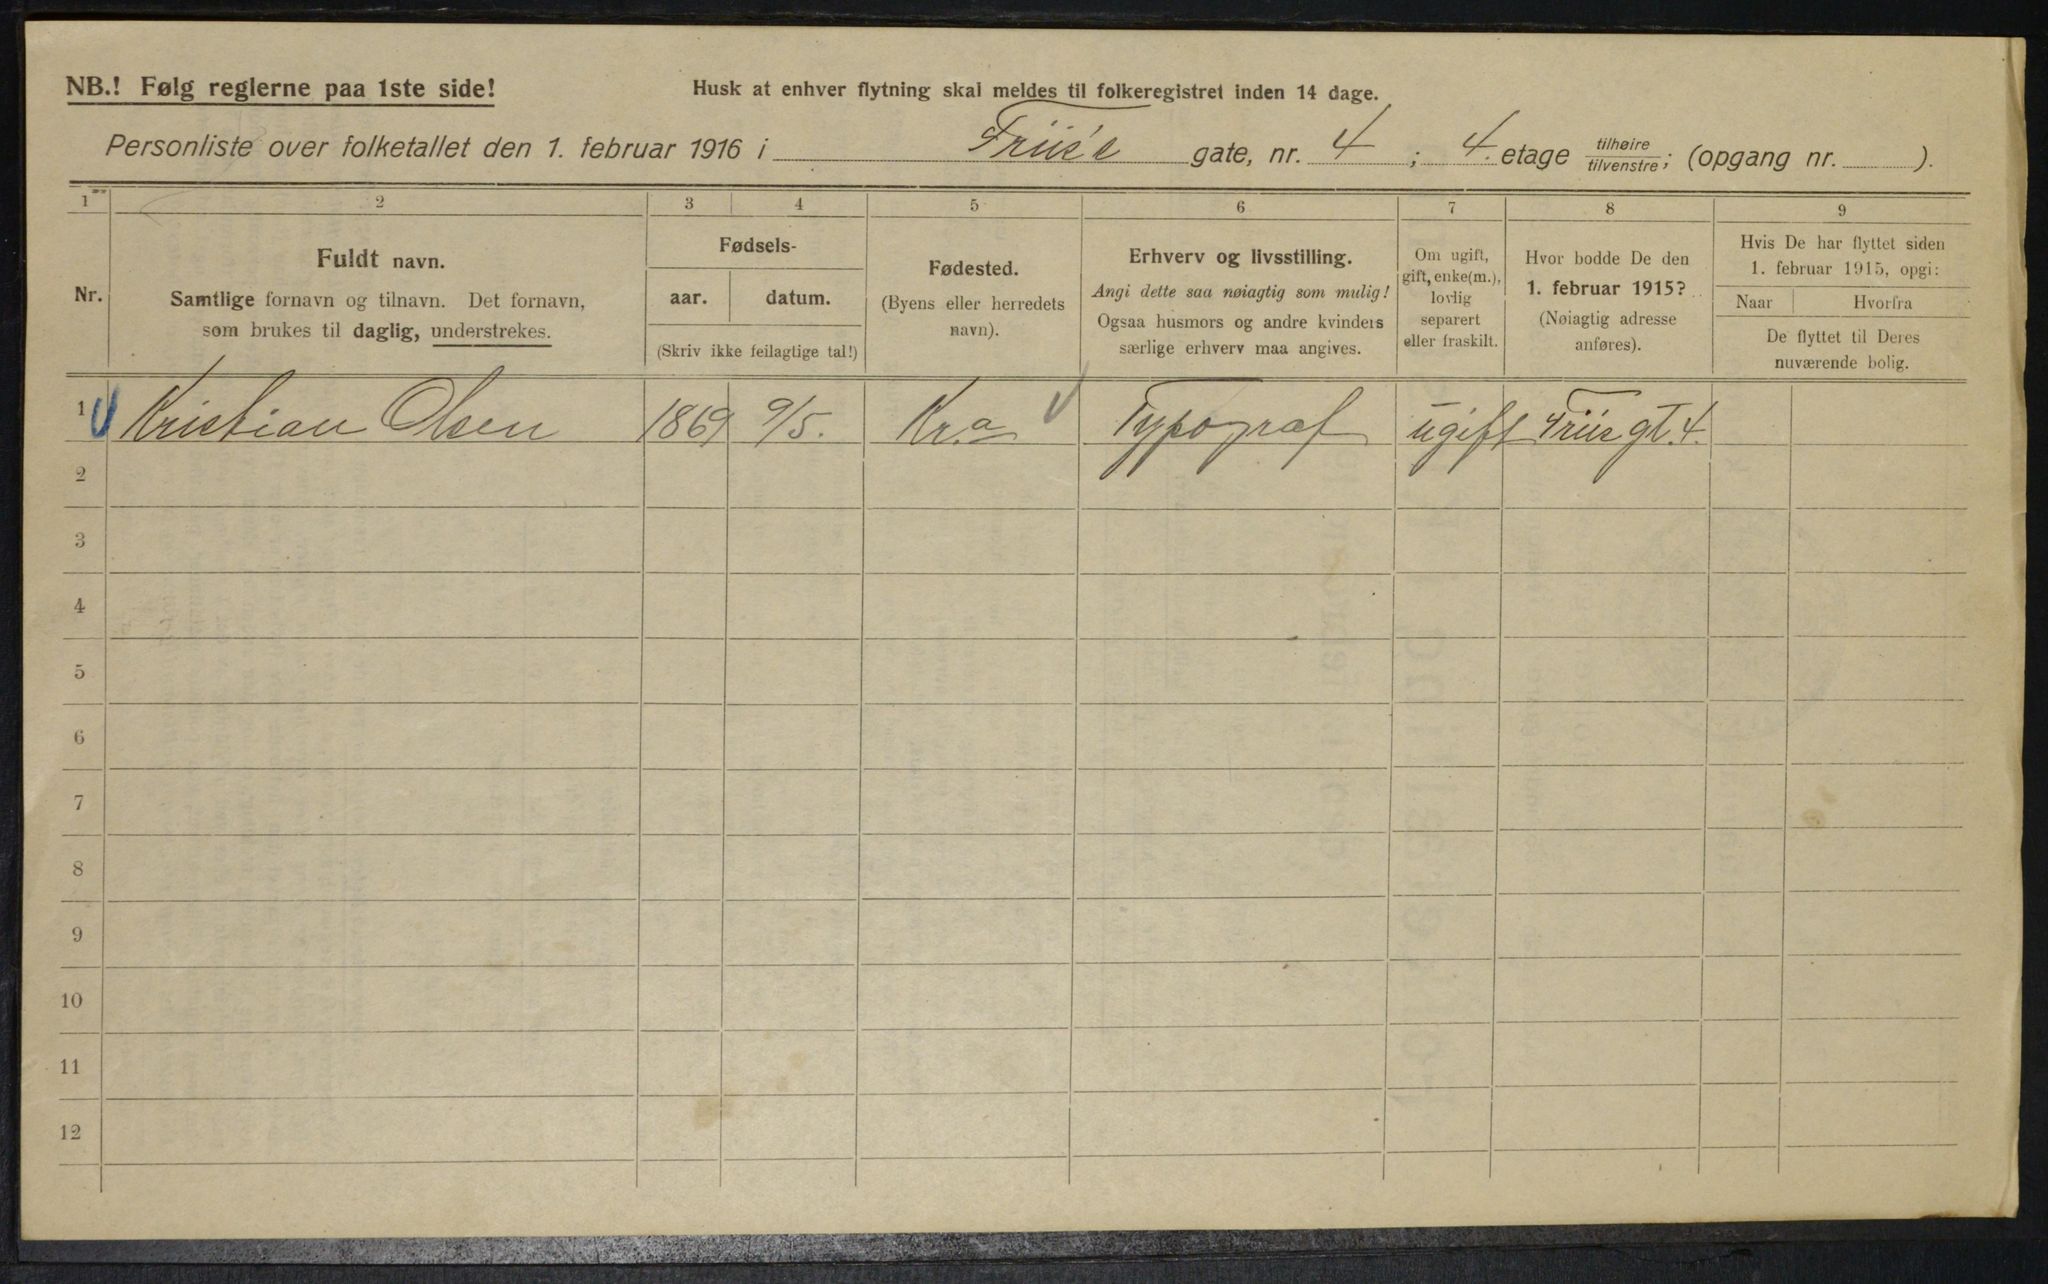 NB.! Følg reglerne paa 1ste side!
Husk at enhver flytning skal meldes til folkeregistret inden 14 dage.
Personliste over folketallet den 1. februar 1916 i Friis's gate, nr. 4; 4. etage tilhøire/tilvenstre; (opgang nr. ).
1 2 3 4 5 6 7 8 9
Nr.
Fuldt navn.
Samtlige fornavn og tilnavn. Det fornavn,
som brukes til daglig, understrekes.
Fødsels-
aar. datum.
(Skriv ikke feilagtige tal!)
Fødested.
(Byens eller herredets
navn).
Erhverv og livsstilling.
Angi dette saa nøiagtig som mulig!
Ogsaa husmors og andre kvinders
særlige erhverv maa angives.
Om ugift,
gift, enke(m.),
lovlig
separert
eller fraskilt.
Hvor bodde De den
1. februar 1915?
(Nøiagtig adresse
anføres).
Hvis De har flyttet siden
1. februar 1915, opgi:
Naar Hvorfra
De flyttet til Deres
nuværende bolig.
1 Kristian Olsen 1869 9/5. Kr.a Typograf ugift Friisgt. 4.
2
3
4
5
6
7
8
9
10
11
12